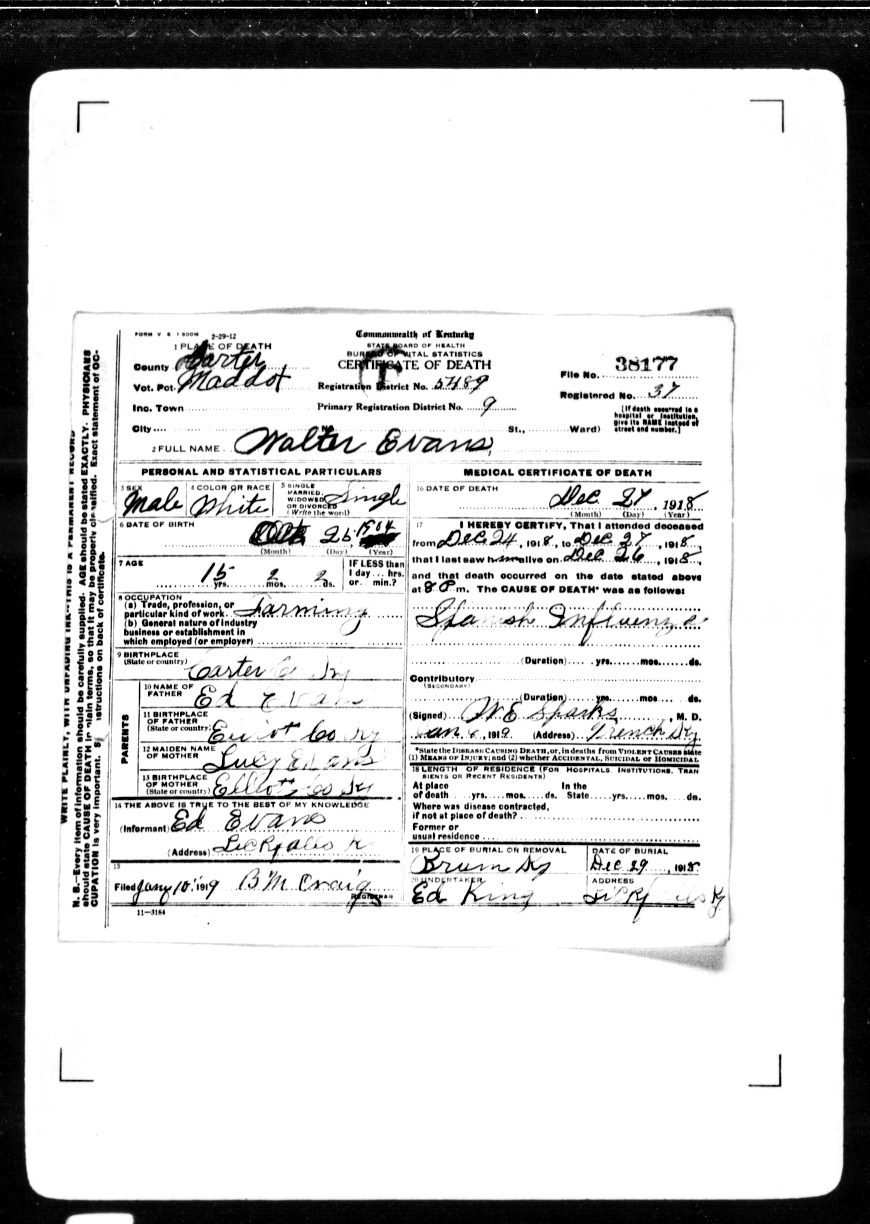 FORM V S 1 500M 2-29-12
Commonwealth of Kentucky
STATE BOARD OF HEALTH
BUREAU OF VITAL STATISTICS
CERTIFICATE OF DEATH
1 PLACE OF DEATH
County Carter
Vot. Pct. Maddox
Inc. Town
City
Registration District No. 5489
Primary Registration District No. 9
No. St., Ward)
File No. 38177
Registered No. 37
[If death occurred in a
hospital or institution,
give its NAME instead of
street and number.]
2 FULL NAME Walter Evans
PERSONAL AND STATISTICAL PARTICULARS
3 SEX Male
4 COLOR OR RACE White
5 SINGLE
MARRIED,
WIDOWED
OR DIVORCED
(Write the word) Single
6 DATE OF BIRTH
Oct 25, 1904
(Month) (Day) (Year)
7 AGE
15 yrs. 2 mos. 2 ds.
IF LESS than
1 day ... hrs.
or ... min.?
8 OCCUPATION
(a) Trade, profession, or
particular kind of work Farming
(b) General nature of industry
business or establishment in
which employed (or employer)
9 BIRTHPLACE
(State or country) Carter Co Ky
PARENTS
10 NAME OF
FATHER Ed Evans
11 BIRTHPLACE
OF FATHER
(State or country) Elliott Co Ky
12 MAIDEN NAME
OF MOTHER Lucy Evans
13 BIRTHPLACE
OF MOTHER
(State or country) Elliott Co Ky
14 THE ABOVE IS TRUE TO THE BEST OF MY KNOWLEDGE
(Informant) Ed Evans
(Address)
15
Filed Jany 10 1919 B M Craig
REGISTRAR
11—3184
MEDICAL CERTIFICATE OF DEATH
16 DATE OF DEATH
Dec 27, 1918
(Month) (Day) (Year)
17 I HEREBY CERTIFY, That I attended deceased
from Dec 24, 1918, to Dec 27, 1918,
that I last saw him alive on Dec 26, 1918,
and that death occurred on the date stated above
at 8 P m. The CAUSE OF DEATH* was as follows:
Spanish Influenza
(Duration) yrs. mos. ds.
Contributory
(SECONDARY)
(Duration) yrs. mos. ds.
(Signed) W E Sparks, M. D.
Jan 6, 1919 (Address) Ky
*State the DISEASE CAUSING DEATH, or, in deaths from VIOLENT CAUSES state
(1) MEANS OF INJURY; and (2) whether ACCIDENTAL, SUICIDAL or HOMICIDAL
18 LENGTH OF RESIDENCE (FOR HOSPITALS, INSTITUTIONS, TRAN
SIENTS OR RECENT RESIDENTS)
At place In the
of death yrs. mos. ds. State yrs. mos. ds.
Where was disease contracted,
if not at place of death?
Former or
usual residence
19 PLACE OF BURIAL OR REMOVAL
Bruin Ky
DATE OF BURIAL
Dec 29, 1918
20 UNDERTAKER
Ed King
ADDRESS
Ky
WRITE PLAINLY, WITH UNFADING INK—THIS IS A PERMANENT RECORD
N. B.—Every item of information should be carefully supplied. AGE should be stated EXACTLY. PHYSICIANS
should state CAUSE OF DEATH in plain terms, so that it may be properly classified. Exact statement of OC-
CUPATION is very important. See instructions on back of certificate.